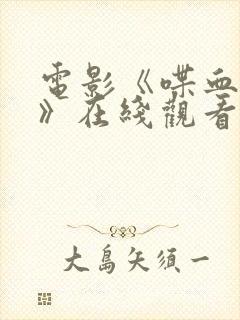 電影《喋血
》在綫觀看
大島矢須一